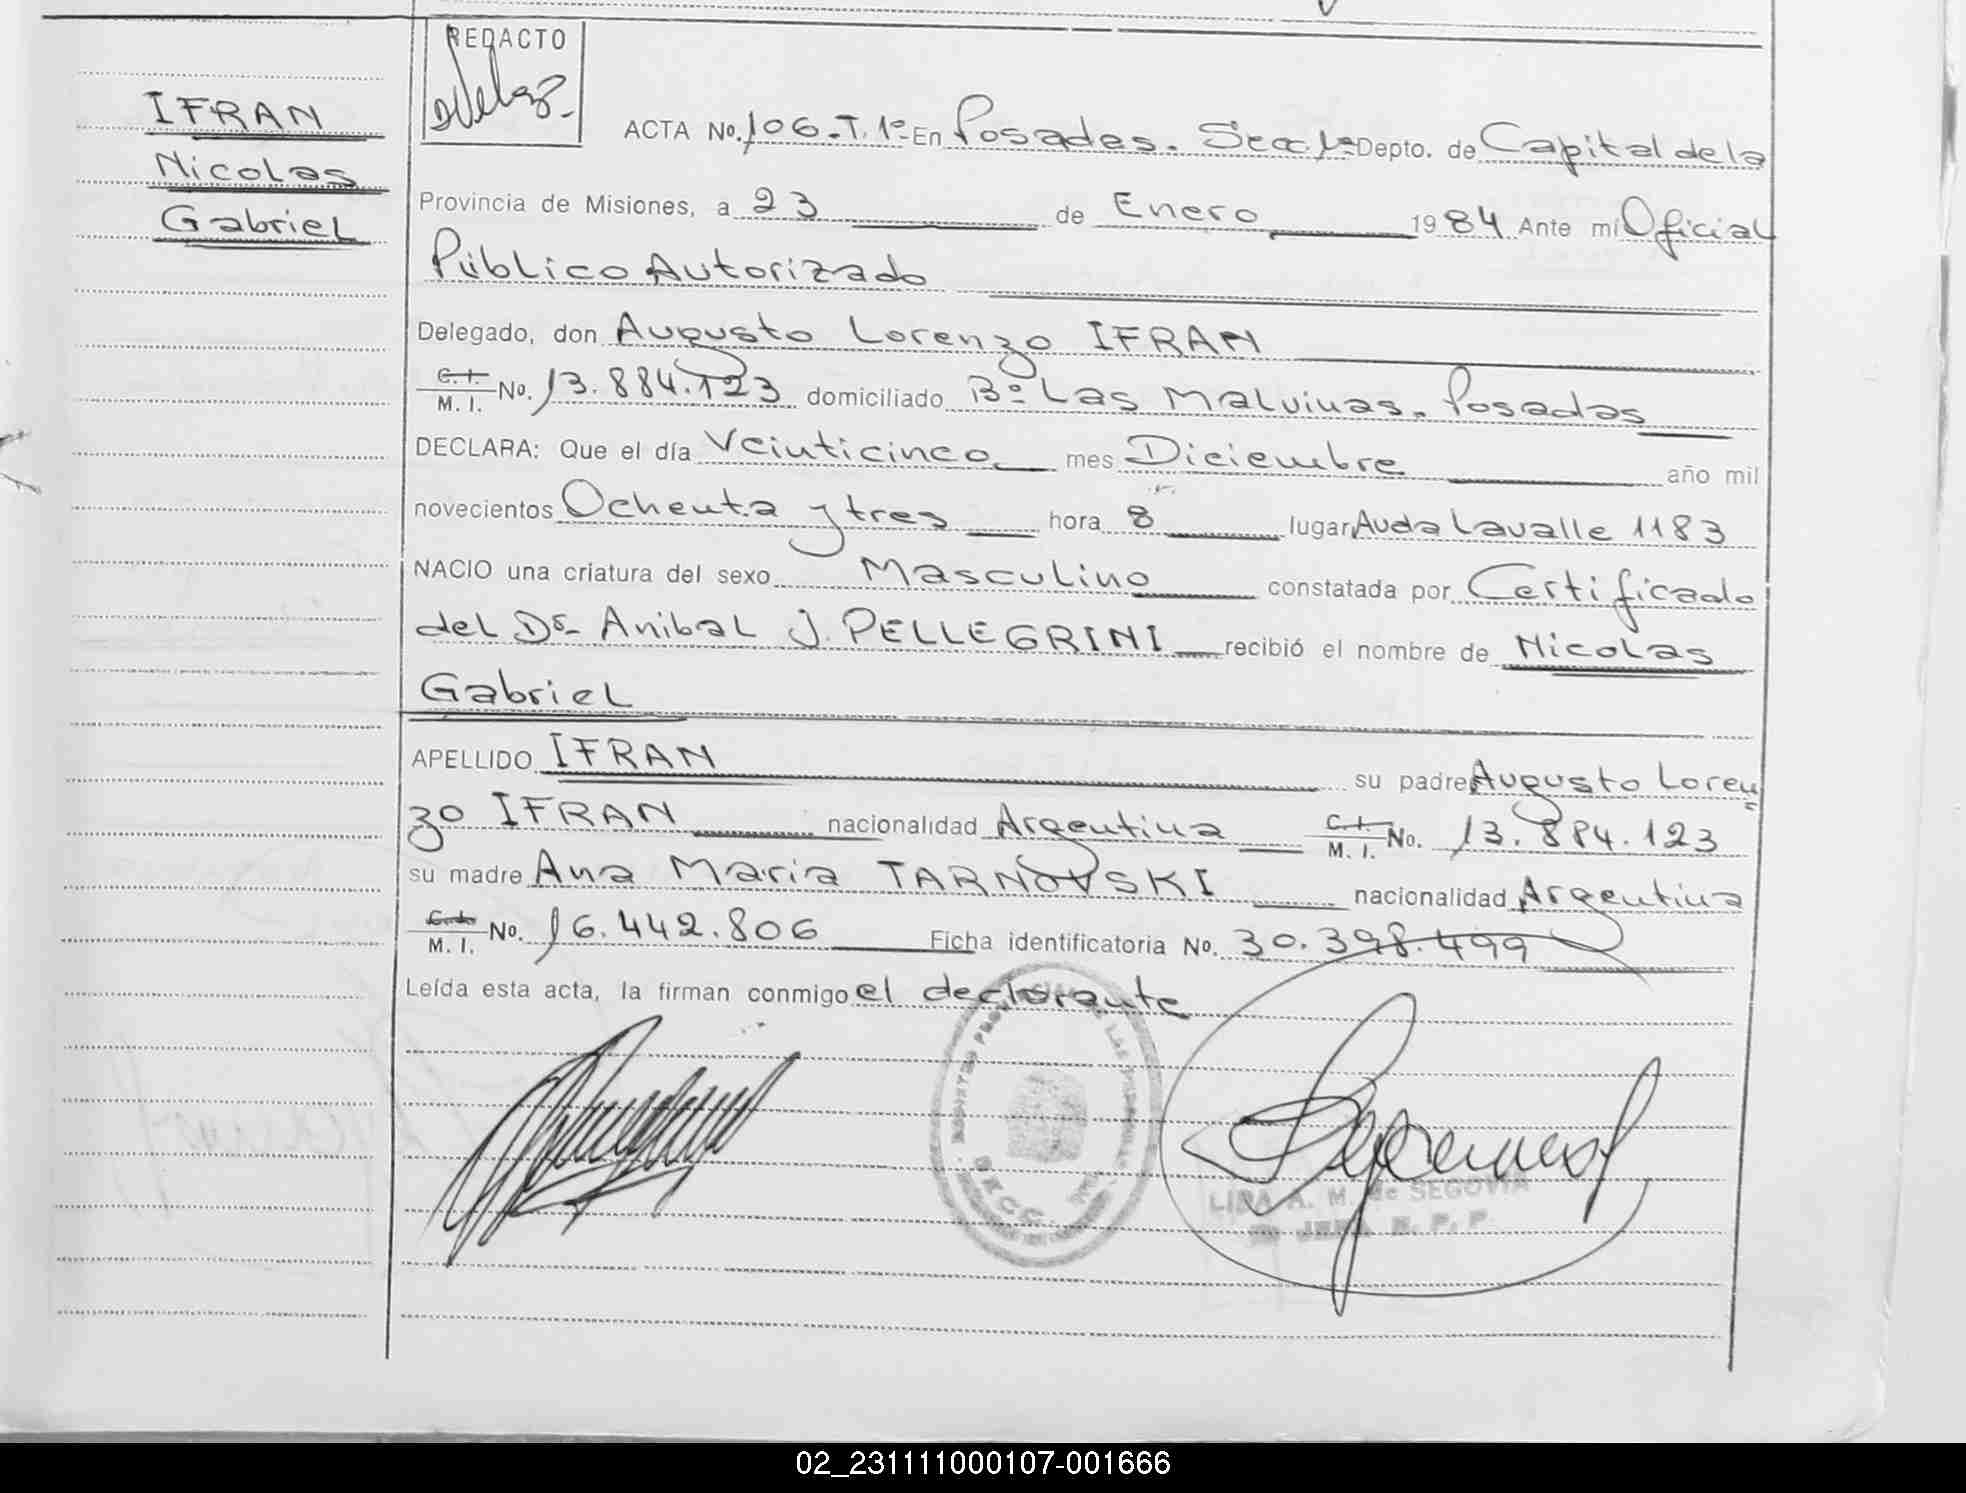 IFRAN
Nicolas
Gabriel
REDACTO
ACTA No. 106-T.1º- En Posadas. Secc 1ª Depto. de Capital de la
Provincia de Misiones, a 23 de Enero 1984 Ante mí Oficial
Público Autorizado
Delegado, don Augusto Lorenzo IFRAN
C. I. / M. I. No. 13.884.123 domiciliado Bº Las Malvinas. Posadas
DECLARA: Que el día Veinticinco mes Diciembre año mil
novecientos Ochenta y tres hora 8 lugar Avda Lavalle 1183
NACIO una criatura del sexo Masculino constatada por Certificado
del Dr. Anibal J. PELLEGRINI recibió el nombre de Nicolas
Gabriel
APELLIDO IFRAN su padre Augusto Loren
zo IFRAN nacionalidad Argentina C. I. / M. I. No. 13.884.123
su madre Ana Maria TARNOVSKI nacionalidad Argentina
C. I. / M. I. No. 16.442.806 Ficha identificatoria No. 30.398.499
Leída esta acta, la firman conmigo el declarante
LIDA A. M. de SEGOVIA
JEFA R. P. P.
02_231111000107-001666